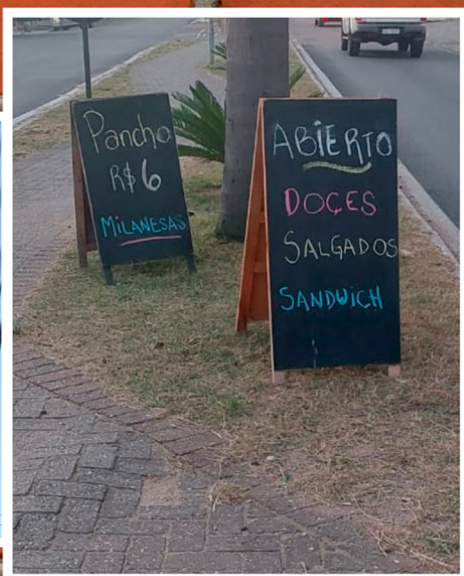 Pancho
R$ 6
MILANESAS
ABIERTO
DOÇES
SALGADOS
SANDWICH